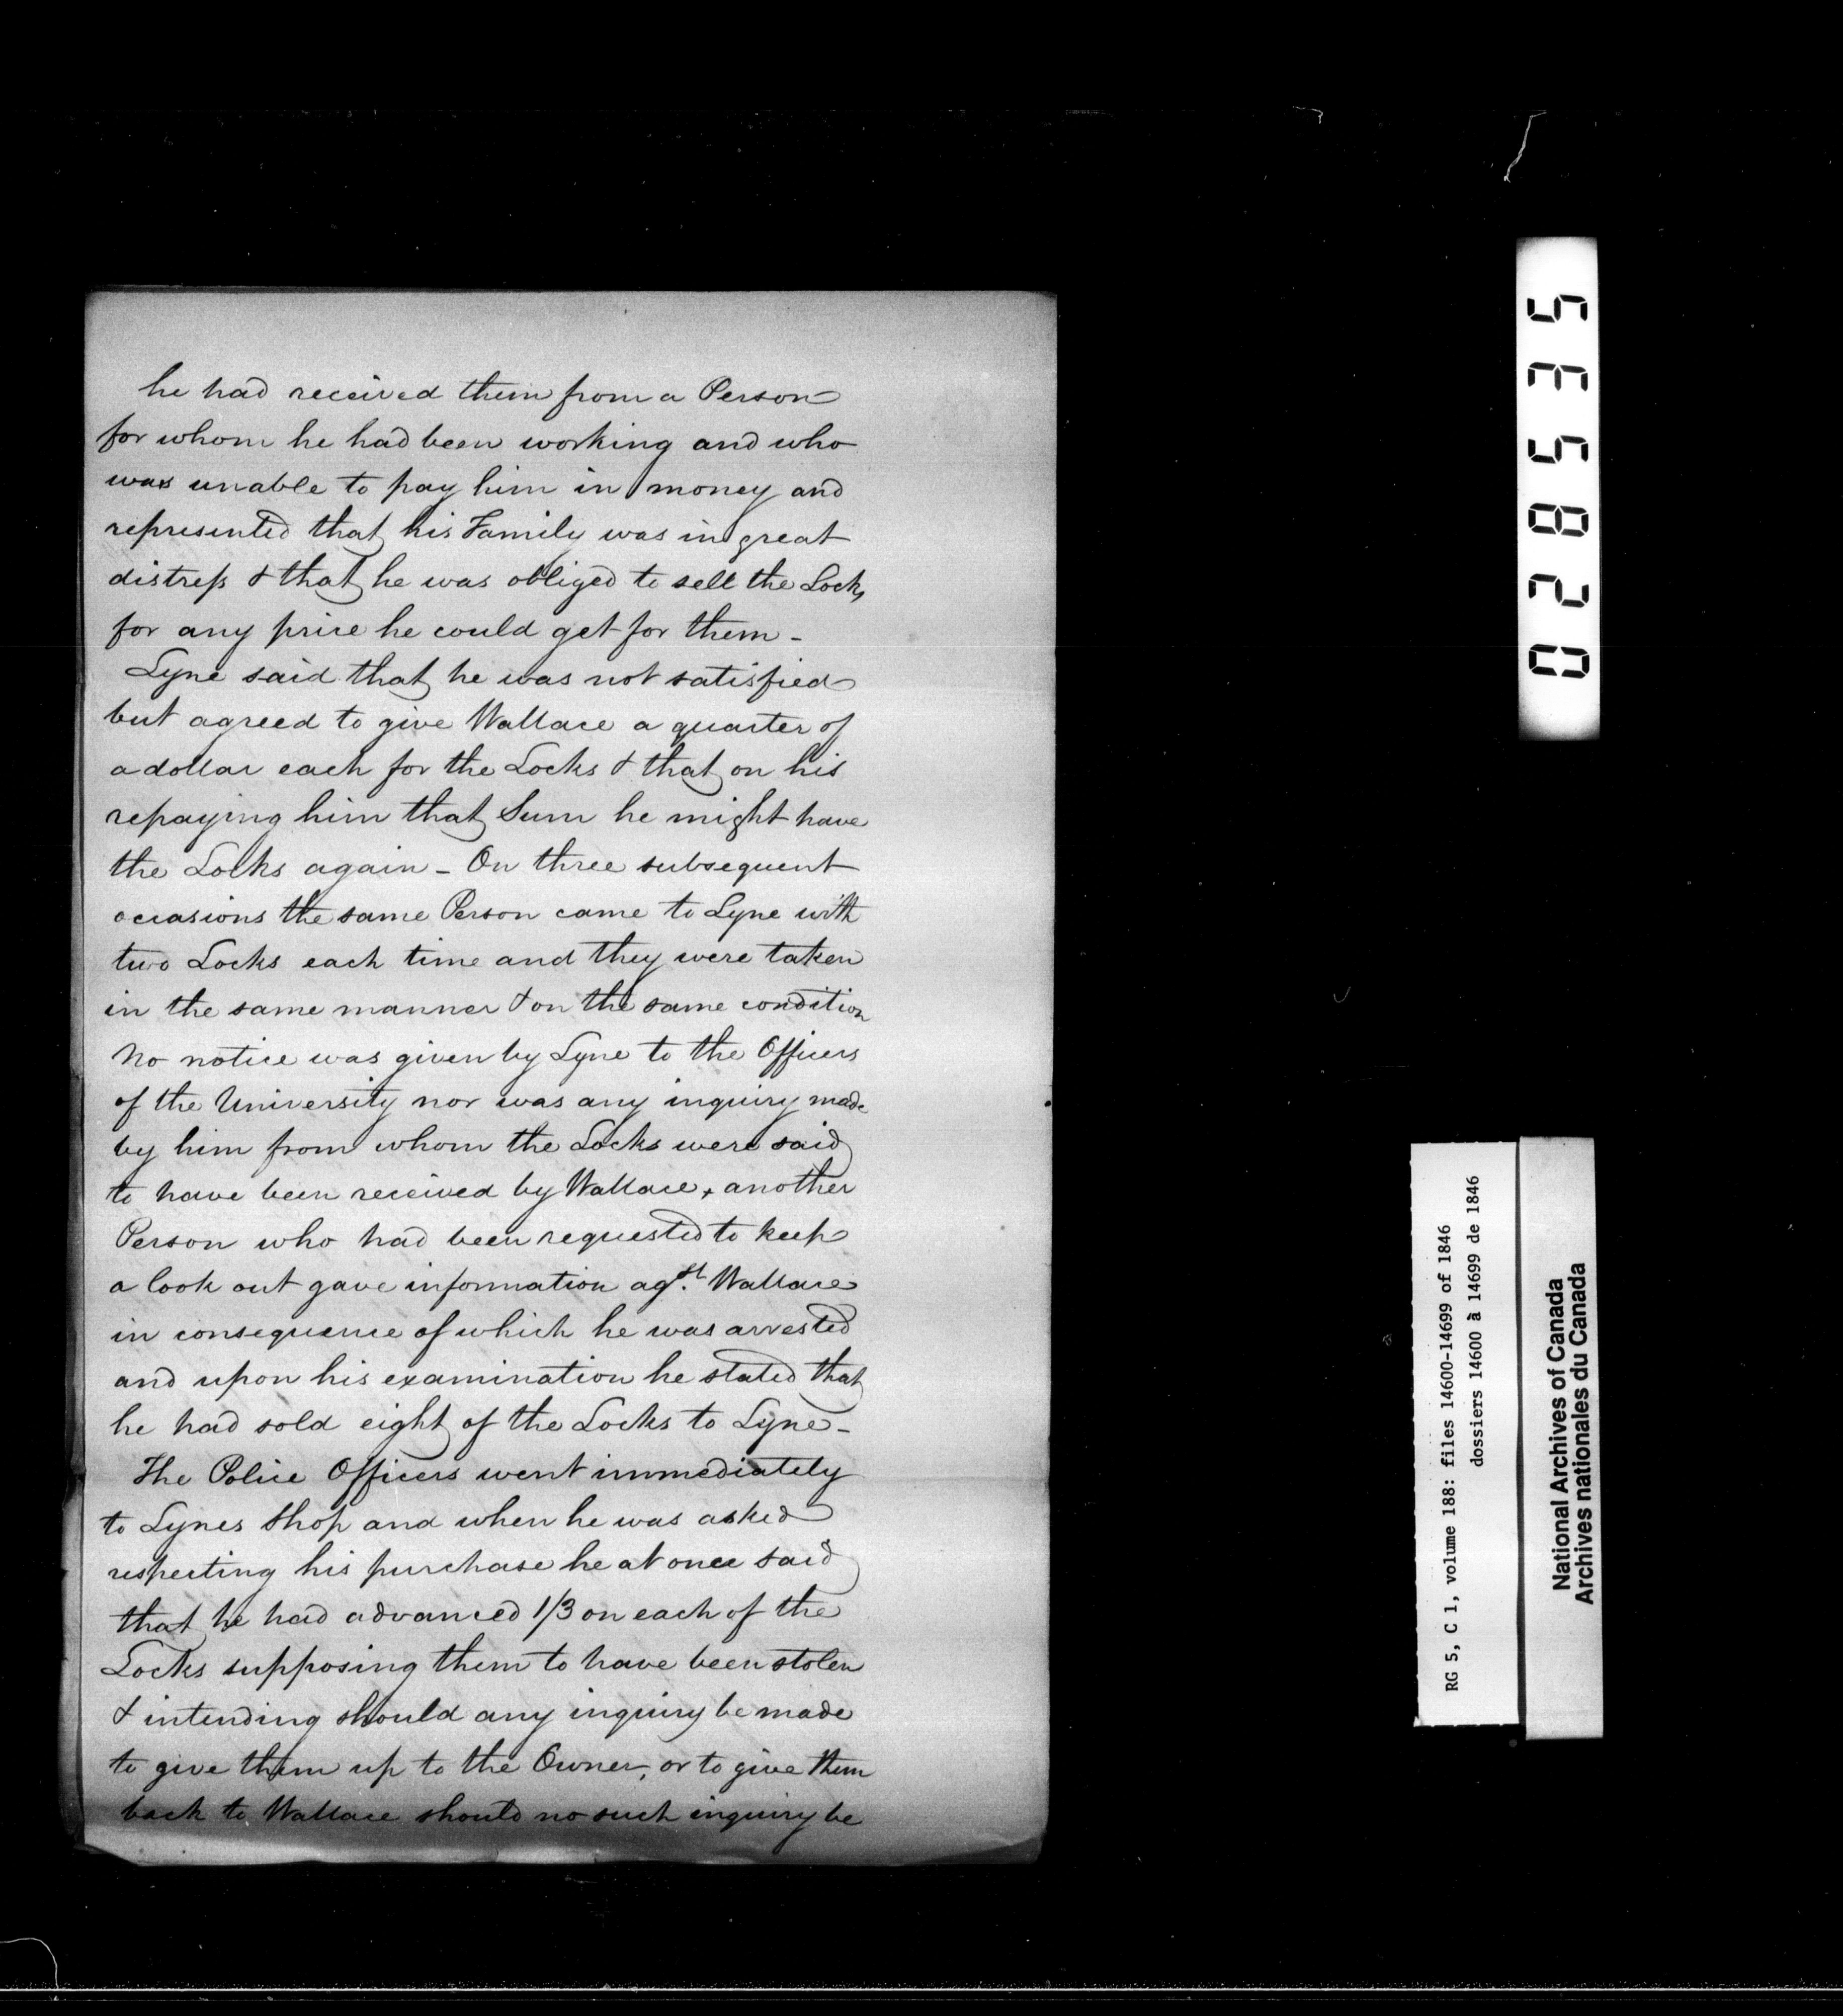 he had received them from a Person
for whom he had been working and who
was unable to pay him in money and
represented that his Family was in great
distress & that he was obliged to sell the Locks
for any price he could get for them -
Lyne said that he was not satisfied
but agreed to give Wallace a quarter of
a dollar each for the Locks & that on his
repaying him that Sum he might have
the Locks again - On three subsequent
occasions the same Person came to Lyne with
two Locks each time and they were taken
in the same manner & on the same condition
No notice was given by Lyne to the Officers
of the University nor was any inquiry made
by him from whom the Locks were said
to have been received by Wallace, another
Person who had been requested to keep
a look out gave information agst. Wallace
in consequence of which he was arrested
and upon his examination he stated that
he had sold eight of the Locks to Lyne -
The Police Officers went immediately
to Lynes Shop and when he was asked
respecting his purchase he at once said
that he had advanced 1/3 on each of the
Locks supposing them to have been stolen
& intending should any inquiry be made
to give them up to the Owner, or to give them
back to Wallace should no such inquiry be
028535
RG 5, C 1, volume 188: files 14600-14699 of 1846
dossiers 14600 à 14699 de 1846
National Archives of Canada
Archives nationales du Canada